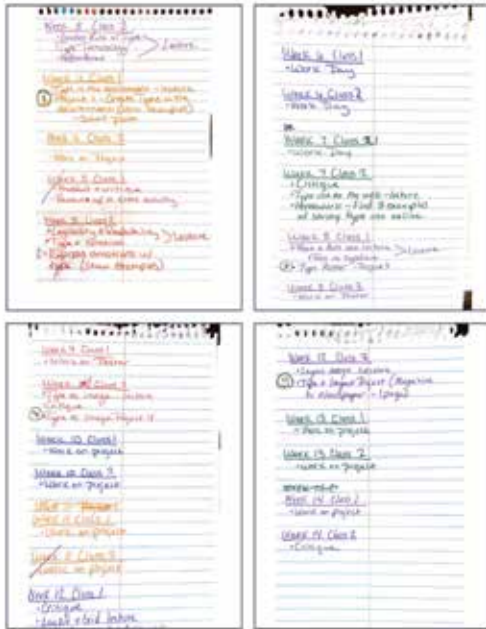 Week 3 Class 2
Lecture
Week 4 Class 1
Type in the environment - lecture
Project 2 - Create Type in the
environment (show examples)
Week 4 Class 2
Work on Project
Week 5 Class 1
Project 2 critique
Week 5 Class 2
Legibility & Readability
Type & Emotion
Lecture
Express emotions w/
type (show examples)
Week 6 Class 1
• Work Day
Week 6 Class 2
• Work Day
Week 7 Class 1
• Work Day
Week 7 Class 2
• Critique
• Type use on the web - lecture
• Homework - Find 3 examples
of strong type use online
Week 8 Class 1
Lecture
• Type Poster - Project
Week 8 Class 2
• Work on Poster
Week 9 Class 1
• Work on Poster
Week 9 Class 2
• Type as image - lecture
• Critique
• Type as Image Project
Week 10 Class 1
• Work on project
Week 10 Class 2
• Work on project
Week 11 Class 1
• Work on project
Week 11 Class 2
• Work on project
Week 12 Class 1
• Critique
• Layout & Grid lecture
Week 12 Class 2
• Layout design lecture
• Type & Layout Project (Magazine
Newspaper
Week 13 Class 1
• Work on project
Week 13 Class 2
• Work on project
Week 14 Class 1
• Work on project
Week 14 Class 2
• Critique